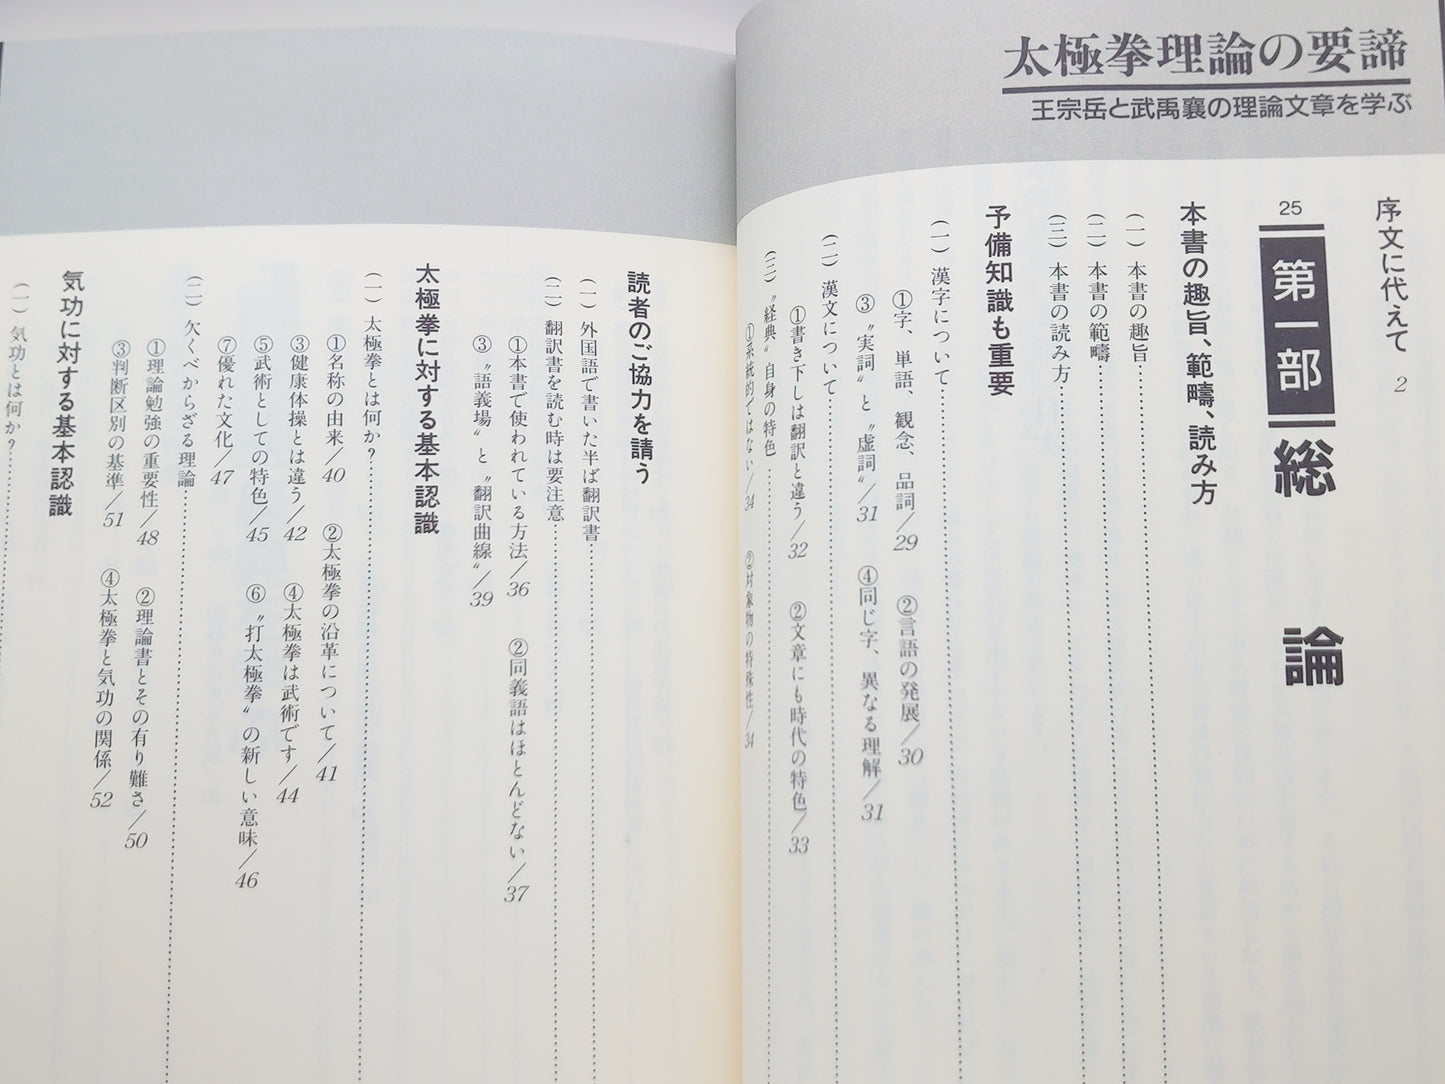 太極拳理論の要諦
王宗岳と武禹襄の理論文章を学ぶ
序文に代えて 2
25 第一部 総論
本書の趣旨、範疇、読み方
(一) 本書の趣旨
(二) 本書の範疇
(三) 本書の読み方
予備知識も重要
(一) 漢字について
①字、単語、観念、品詞/29 ②言語の発展/30
③〝実詞〟と〝虚詞〟/31 ④同じ字、異なる理解/31
(二) 漢文について
①書き下しは翻訳と違う/32 ②文章にも時代の特色/33
(三) 〝経典〟自身の特色
①系統的ではない/34 ②対象物の特殊性/34
読者のご協力を請う
(一) 外国語で書いた半ば翻訳書
(二) 翻訳書を読む時は要注意
①本書で使われている方法/36 ②同義語はほとんどない/37
③〝語義場〟と〝翻訳曲線〟/39
太極拳に対する基本認識
(一) 太極拳とは何か?
①名称の由来/40 ②太極拳の沿革について/41
③健康体操とは違う/42 ④太極拳は武術です/44
⑤武術としての特色/45 ⑥〝打太極拳〟の新しい意味/46
⑦優れた文化/47
(二) 欠くべからざる理論
①理論勉強の重要性/48 ②理論書とその有り難さ/50
③判断区別の基準/51 ④太極拳と気功の関係/52
気功に対する基本認識
(一) 気功とは何か?